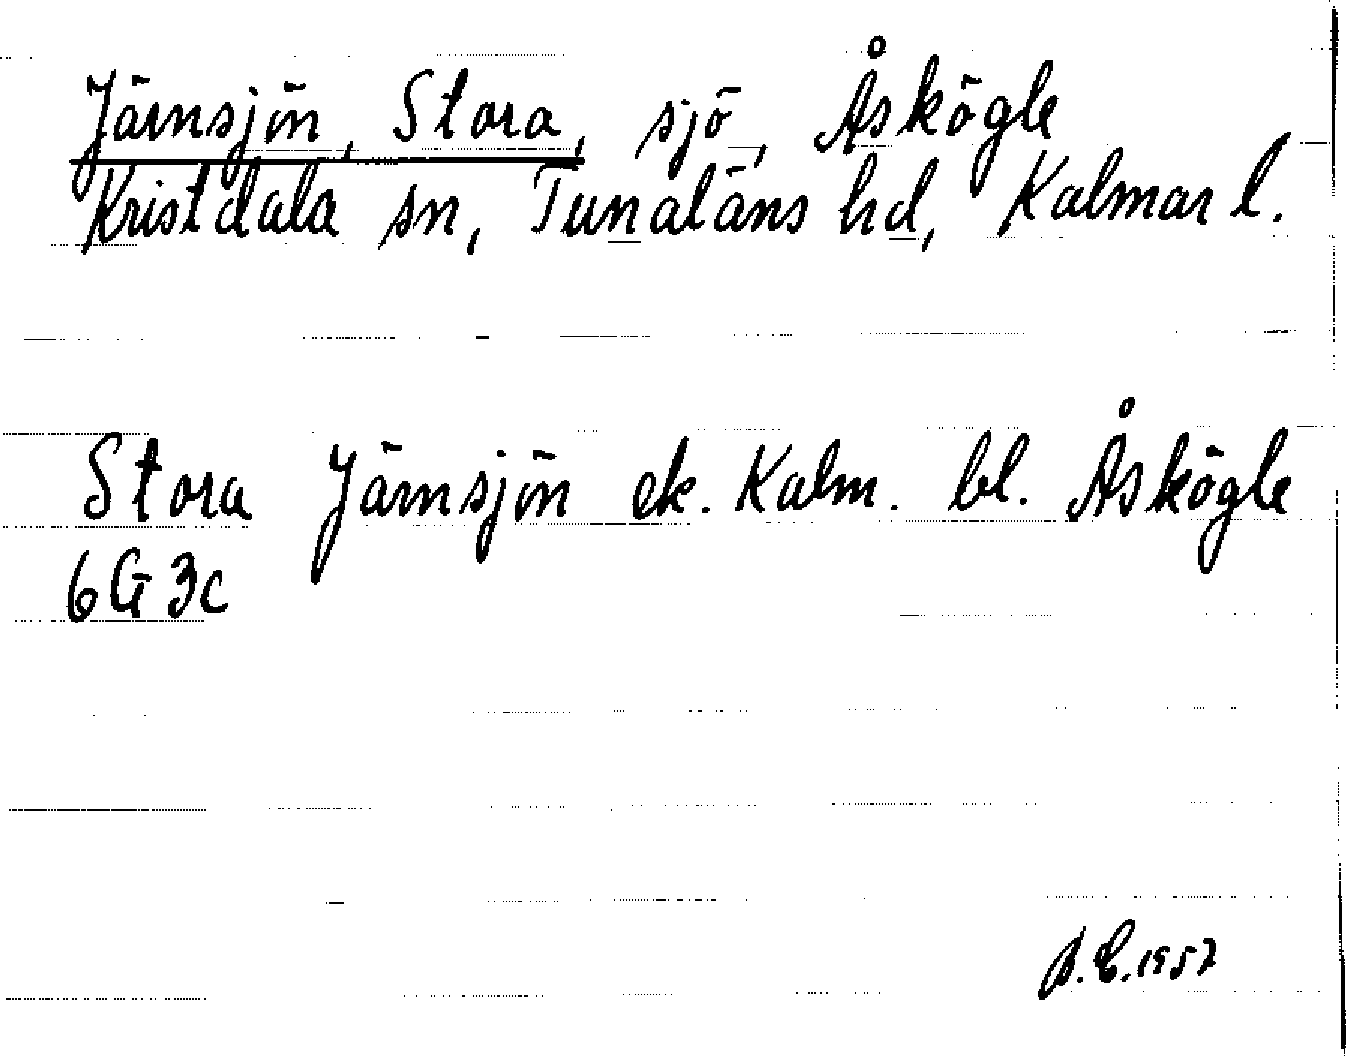 Järnsjön, Stora, sjö, Åskögle
Kristdala sn, Tunaläns hd, Kalmar l.
Stora Järnsjön ek. Kalm. bl. Åskögle
6G 3c
1957